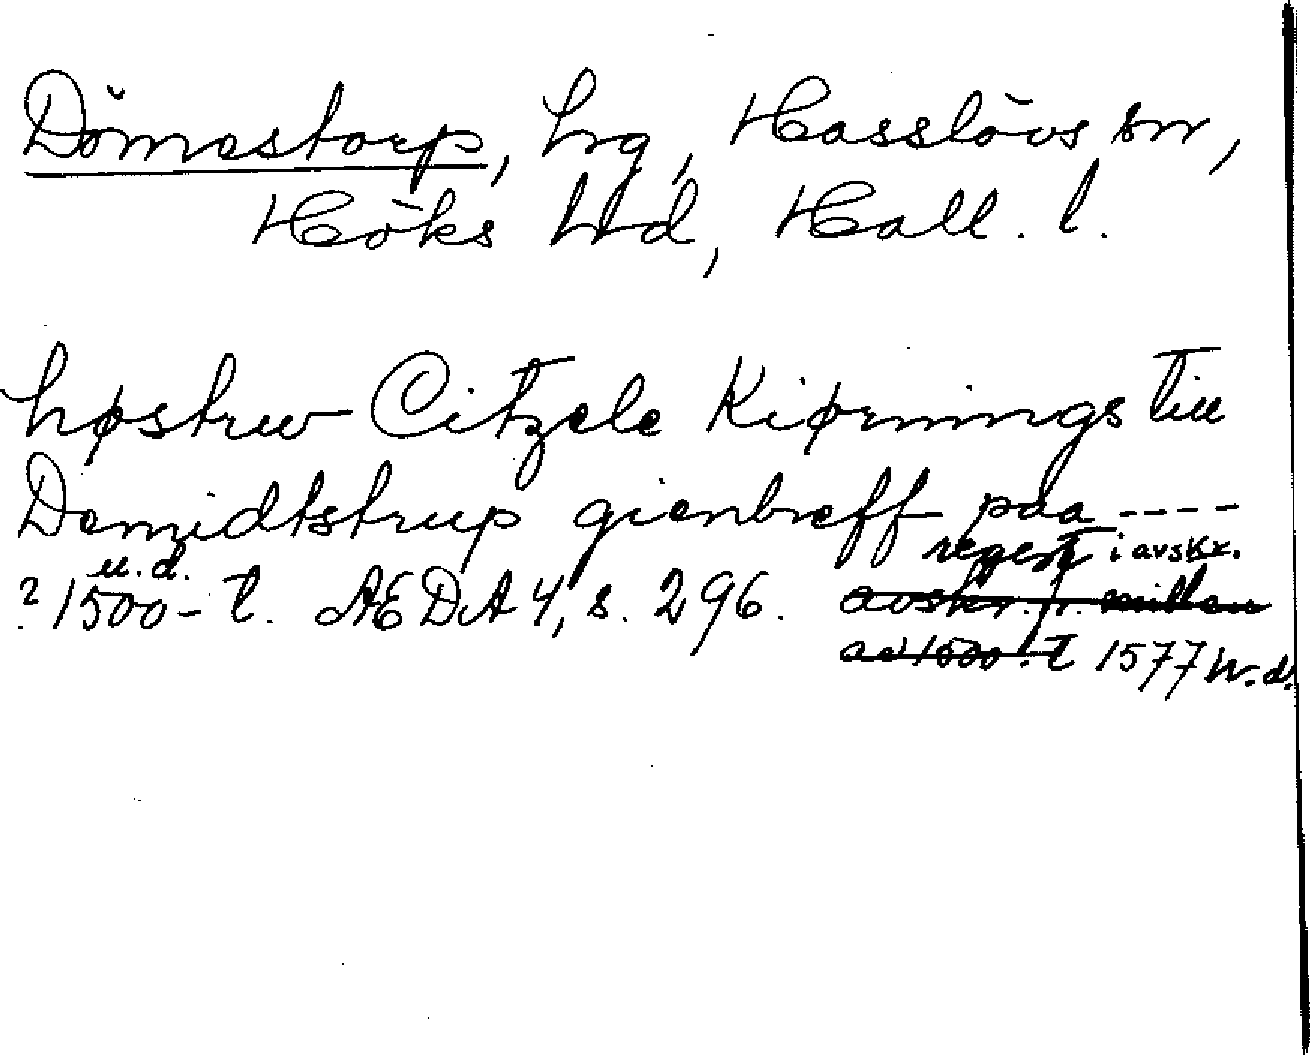 Dömestorp, hrg, Hasslövs sn,
Höks hd, Hall. l.
høstrw Citzele Kiørnings till
Demidtstrup gienbreff paa ----
regest i avskr.
u.d.
? 1500-t. ÆDA 4, s. 296. avskr. fr. mitten
av 1500-t 1577 n.d.